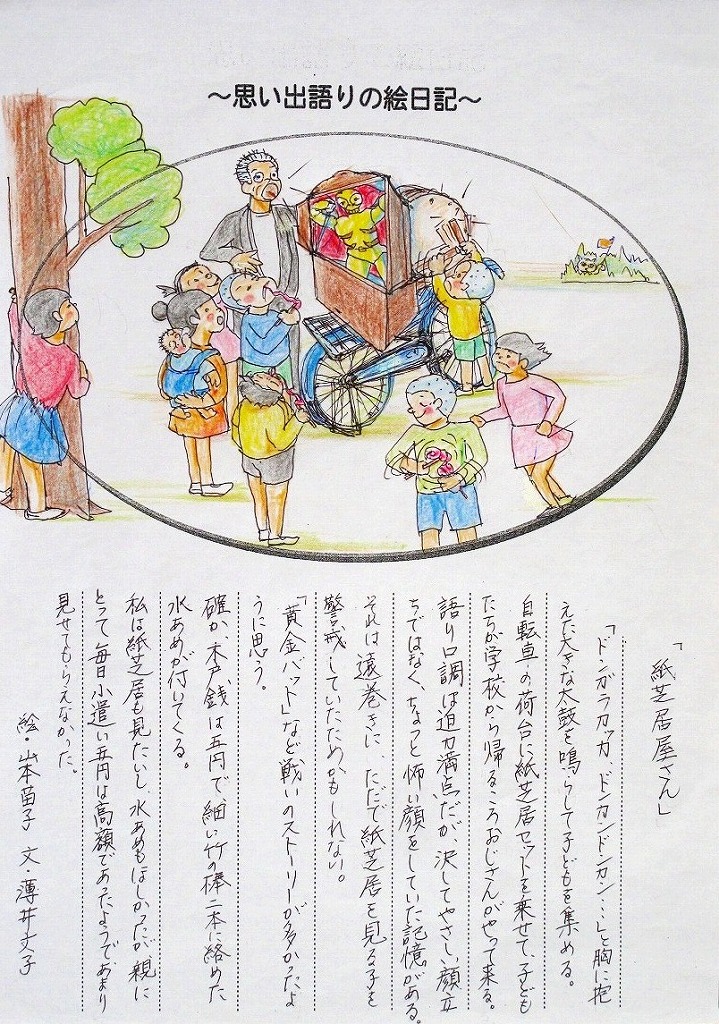 ～思い出語りの絵日記～
「紙芝居屋さん」
「ドンガラカッカ ドンカンドンカン…」と胸に抱
えた大きな太鼓を鳴らして子どもを集める。
自転車の荷台に紙芝居セットを乗せて、子ども
たちが学校から帰るころおじさんがやって来る。
語り口調は迫力満点だが、決してやさしい顔立
ちではなく、ちょっと怖い顔をしていた記憶がある。
それは遠巻きに、ただで紙芝居を見る子を
警戒していたためかもしれない。
「黄金バット」など戦いのストーリーが多かったよ
うに思う。
確か、木戸銭は五円で、細い竹の棒二本に絡めた
水あめが付いてくる。
私は紙芝居も見たいし、水あめもほしかったが、親に
とって毎日小遣い五円は高額であったようで、あまり
見せてもらえなかった。
絵・山本苗子 文・薄井丈子